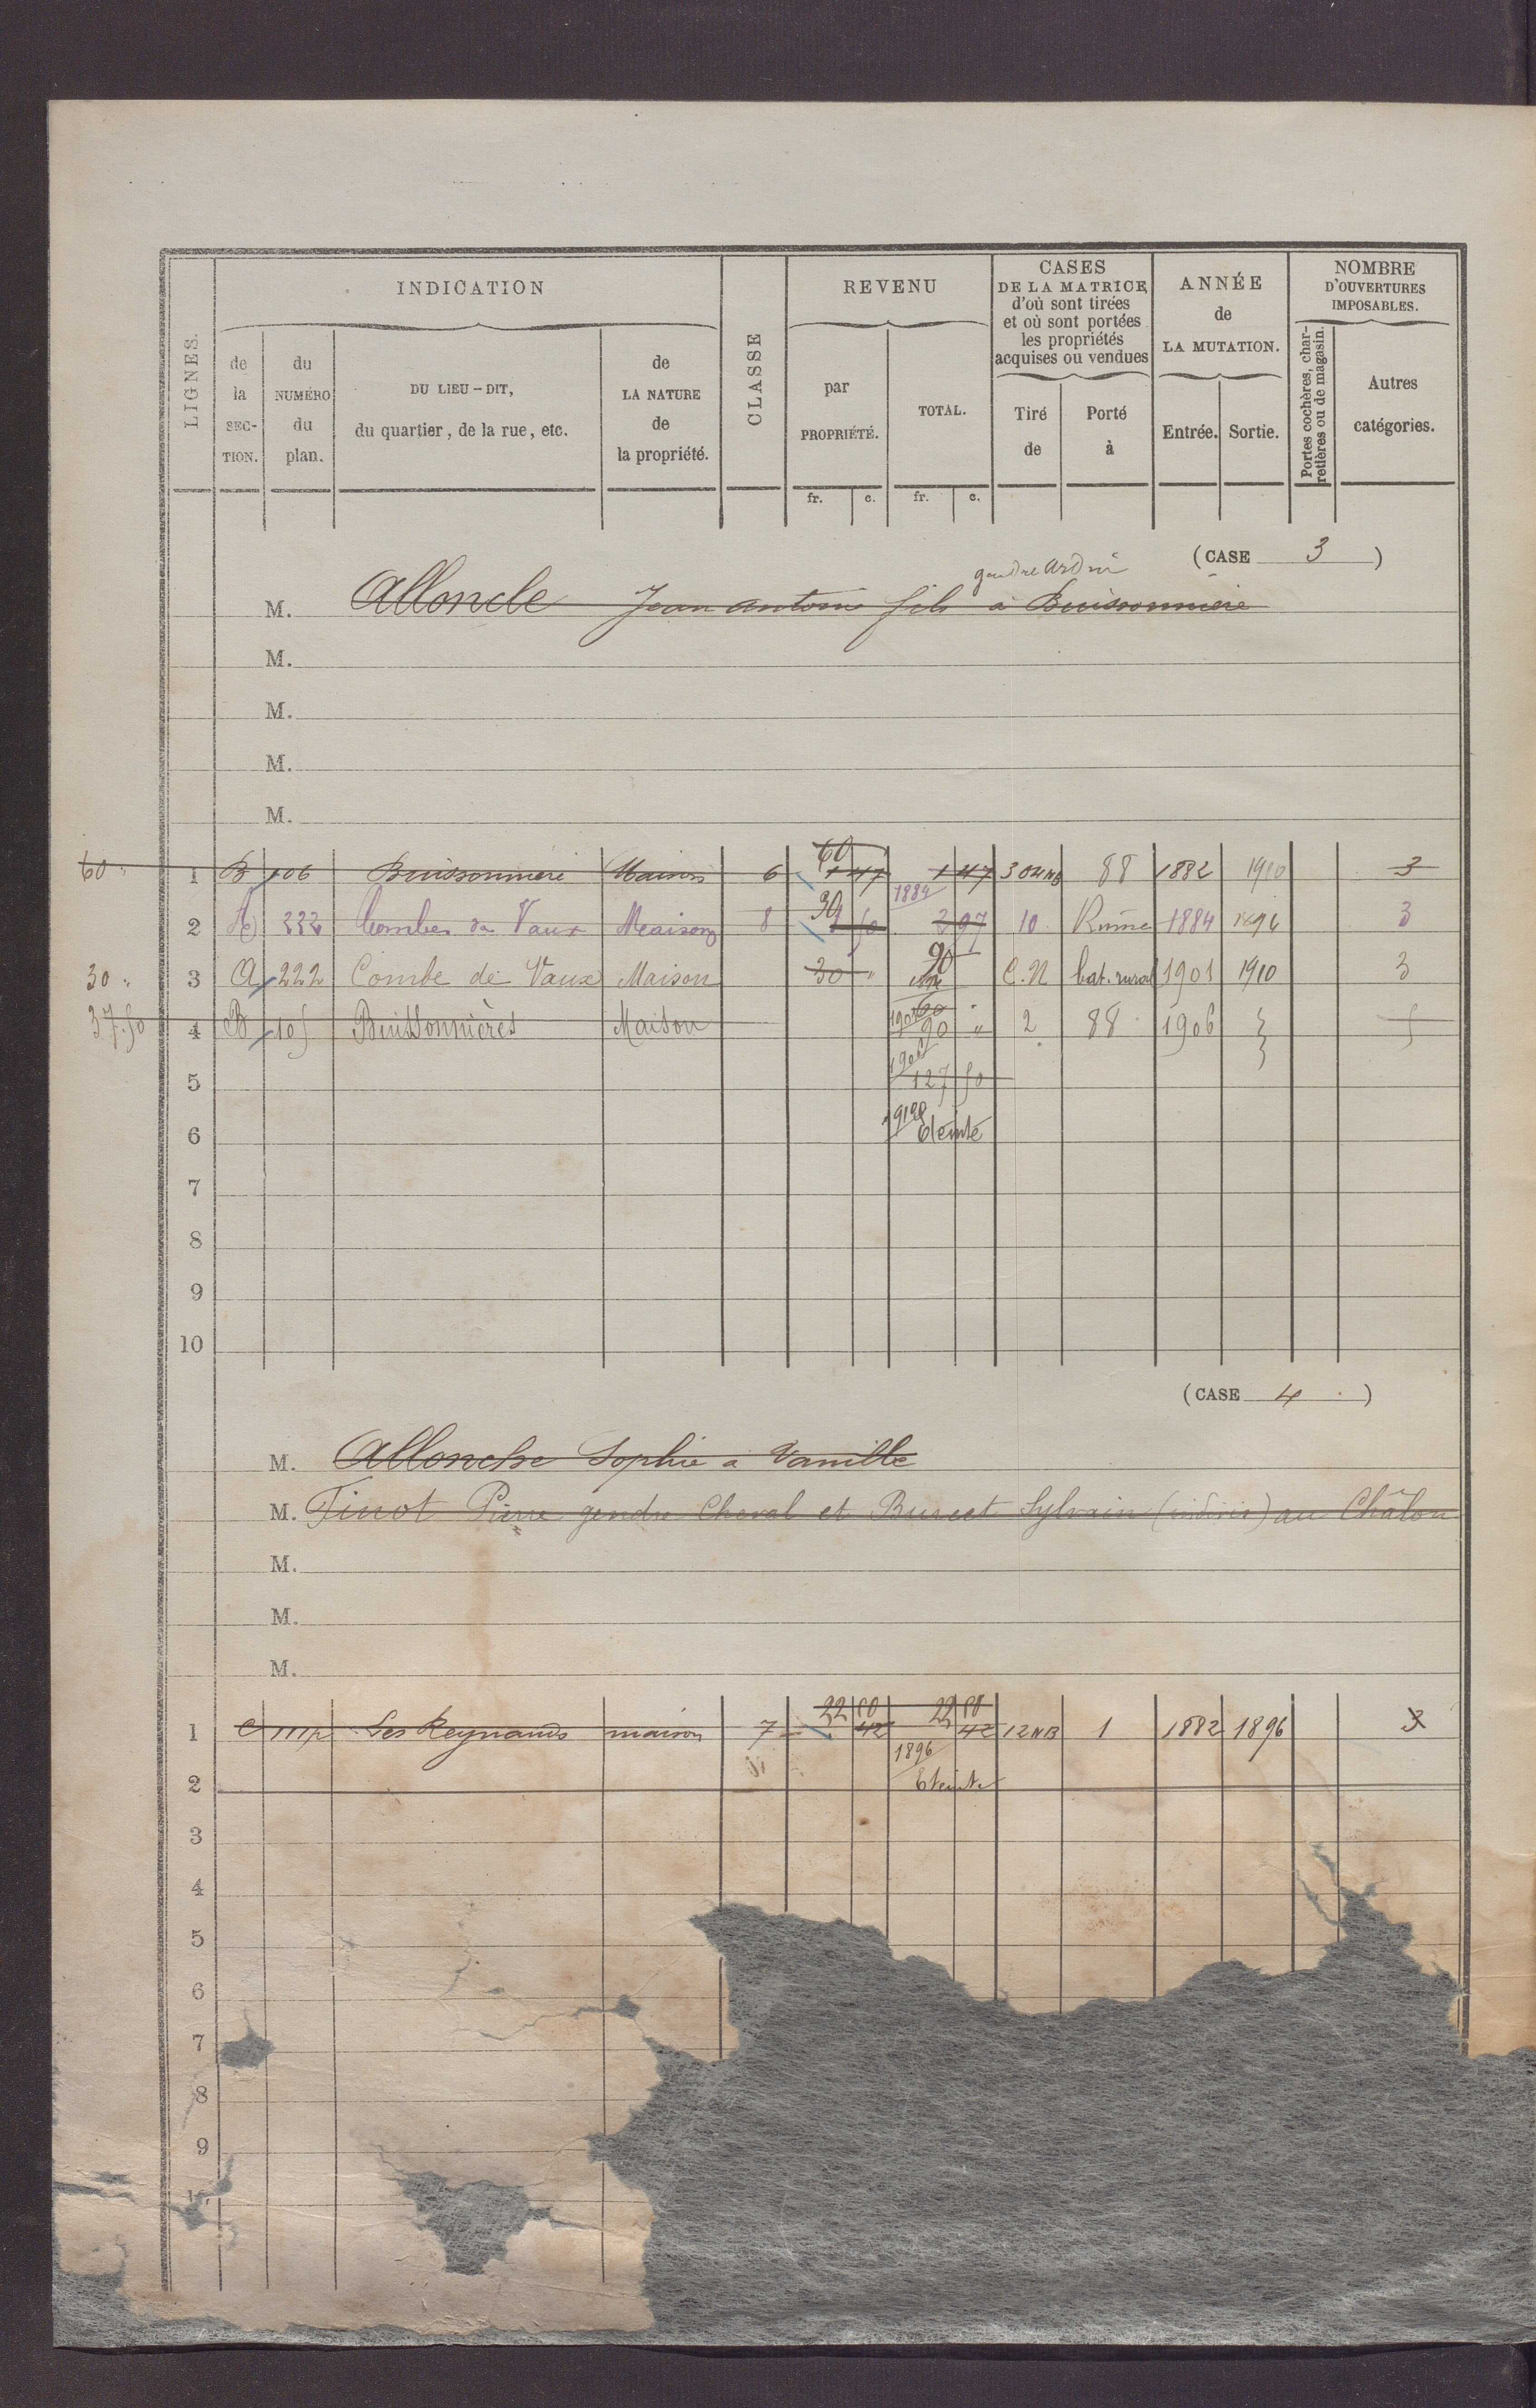 LIGNES.
INDICATION
de la SECTION.
du NUMÉRO du plan.
DU LIEU-DIT, du quartier, de la rue, etc.
de LA NATURE de la propriété.
CLASSE
REVENU
par PROPRIÉTÉ.
TOTAL.
fr. c. fr. c.
CASES DE LA MATRICE d'où sont tirées et où sont portées les propriétés acquises ou vendues
Tiré de
Porté à
ANNÉE de LA MUTATION.
Entrée. Sortie.
NOMBRE D'OUVERTURES IMPOSABLES.
Portes cochères, charretières ou de magasin.
Autres catégories.
(CASE 3)
gendre
M. Alloncle Jean Antoine fils à Buissonnière
M.
M.
M.
M.
60 "
60
1 B 106 Buissonnière Maison 6 1 47 1 47 88 1882 1910 3
30 1884
2 A 222 Combes de Vaux Maison 8 1 50 2 97 10 Ruine 1884 1896 3
90
30 " 3 A 222 Combe de Vaux Maison 30 " C.N bat. rural 1901 1910 3
37.50 4 B 105 Buissonnières Maison 90 " 2 88 1906 5
1906
5 127 50
6 Eteinte
7
8
9
10
(CASE 4)
M. Alloncle Sophie à Vanille
M. Finot Pierre gendre Cheval et Burcet Sylvain (indivis) au Châlon
M.
M.
M.
22 50 22 50
1 C 111p Les Reynauds maison 7 42 42 12 NB 1 1882 1896 3
1896
2 Eteinte
3
4
5
6
7
8
9